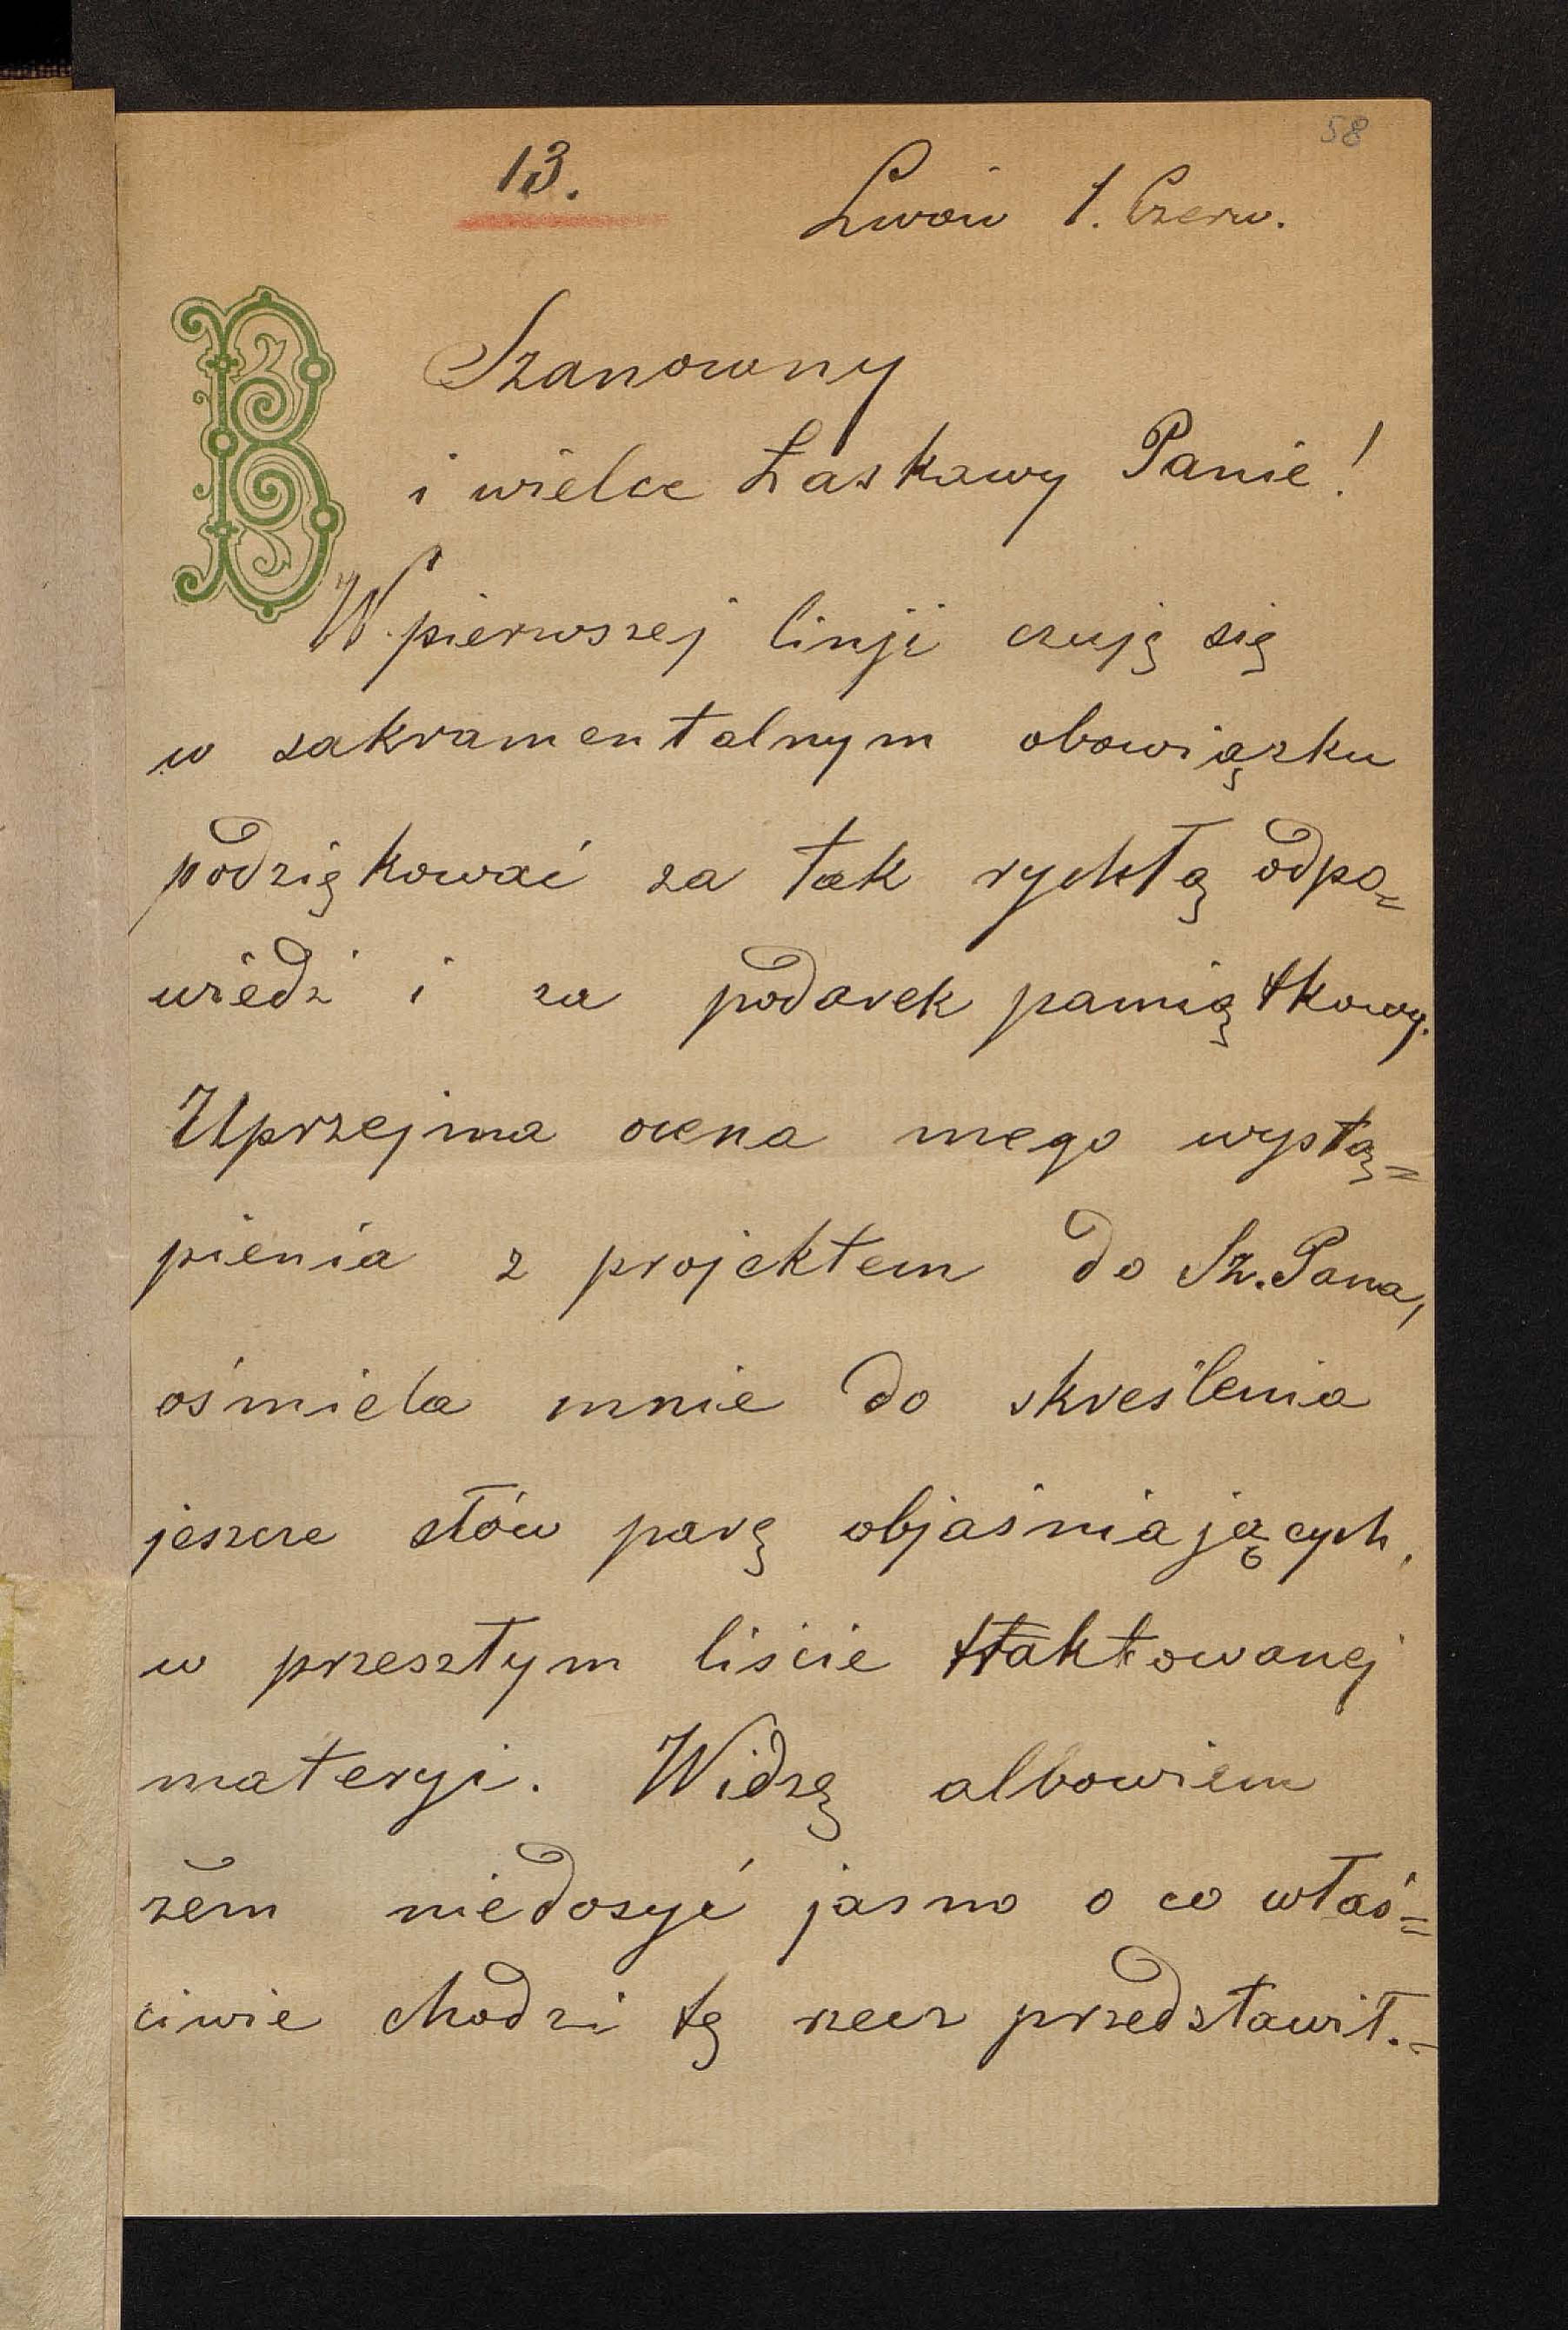 58
13.
Lwów 1. Czerw.
B
Szanowny
i wielce Łaskawy Panie!
W pierwszej linji czuję się
w sakramentalnym obowiązku
podziękować za tak rychłą odpo=
wiedź i za podarek pamiątkowy.
Uprzejma ocena mego wystą=
pienia z projektem do Sz. Pana,
ośmiela mnie do skreślenia
jeszcze słów parę objaśniających,
w przeszłym liście traktowanej
materyi. Widzę albowiem
żem niedosyć jasno o co właś=
ciwie chodzi tę rzecz przedstawił.-